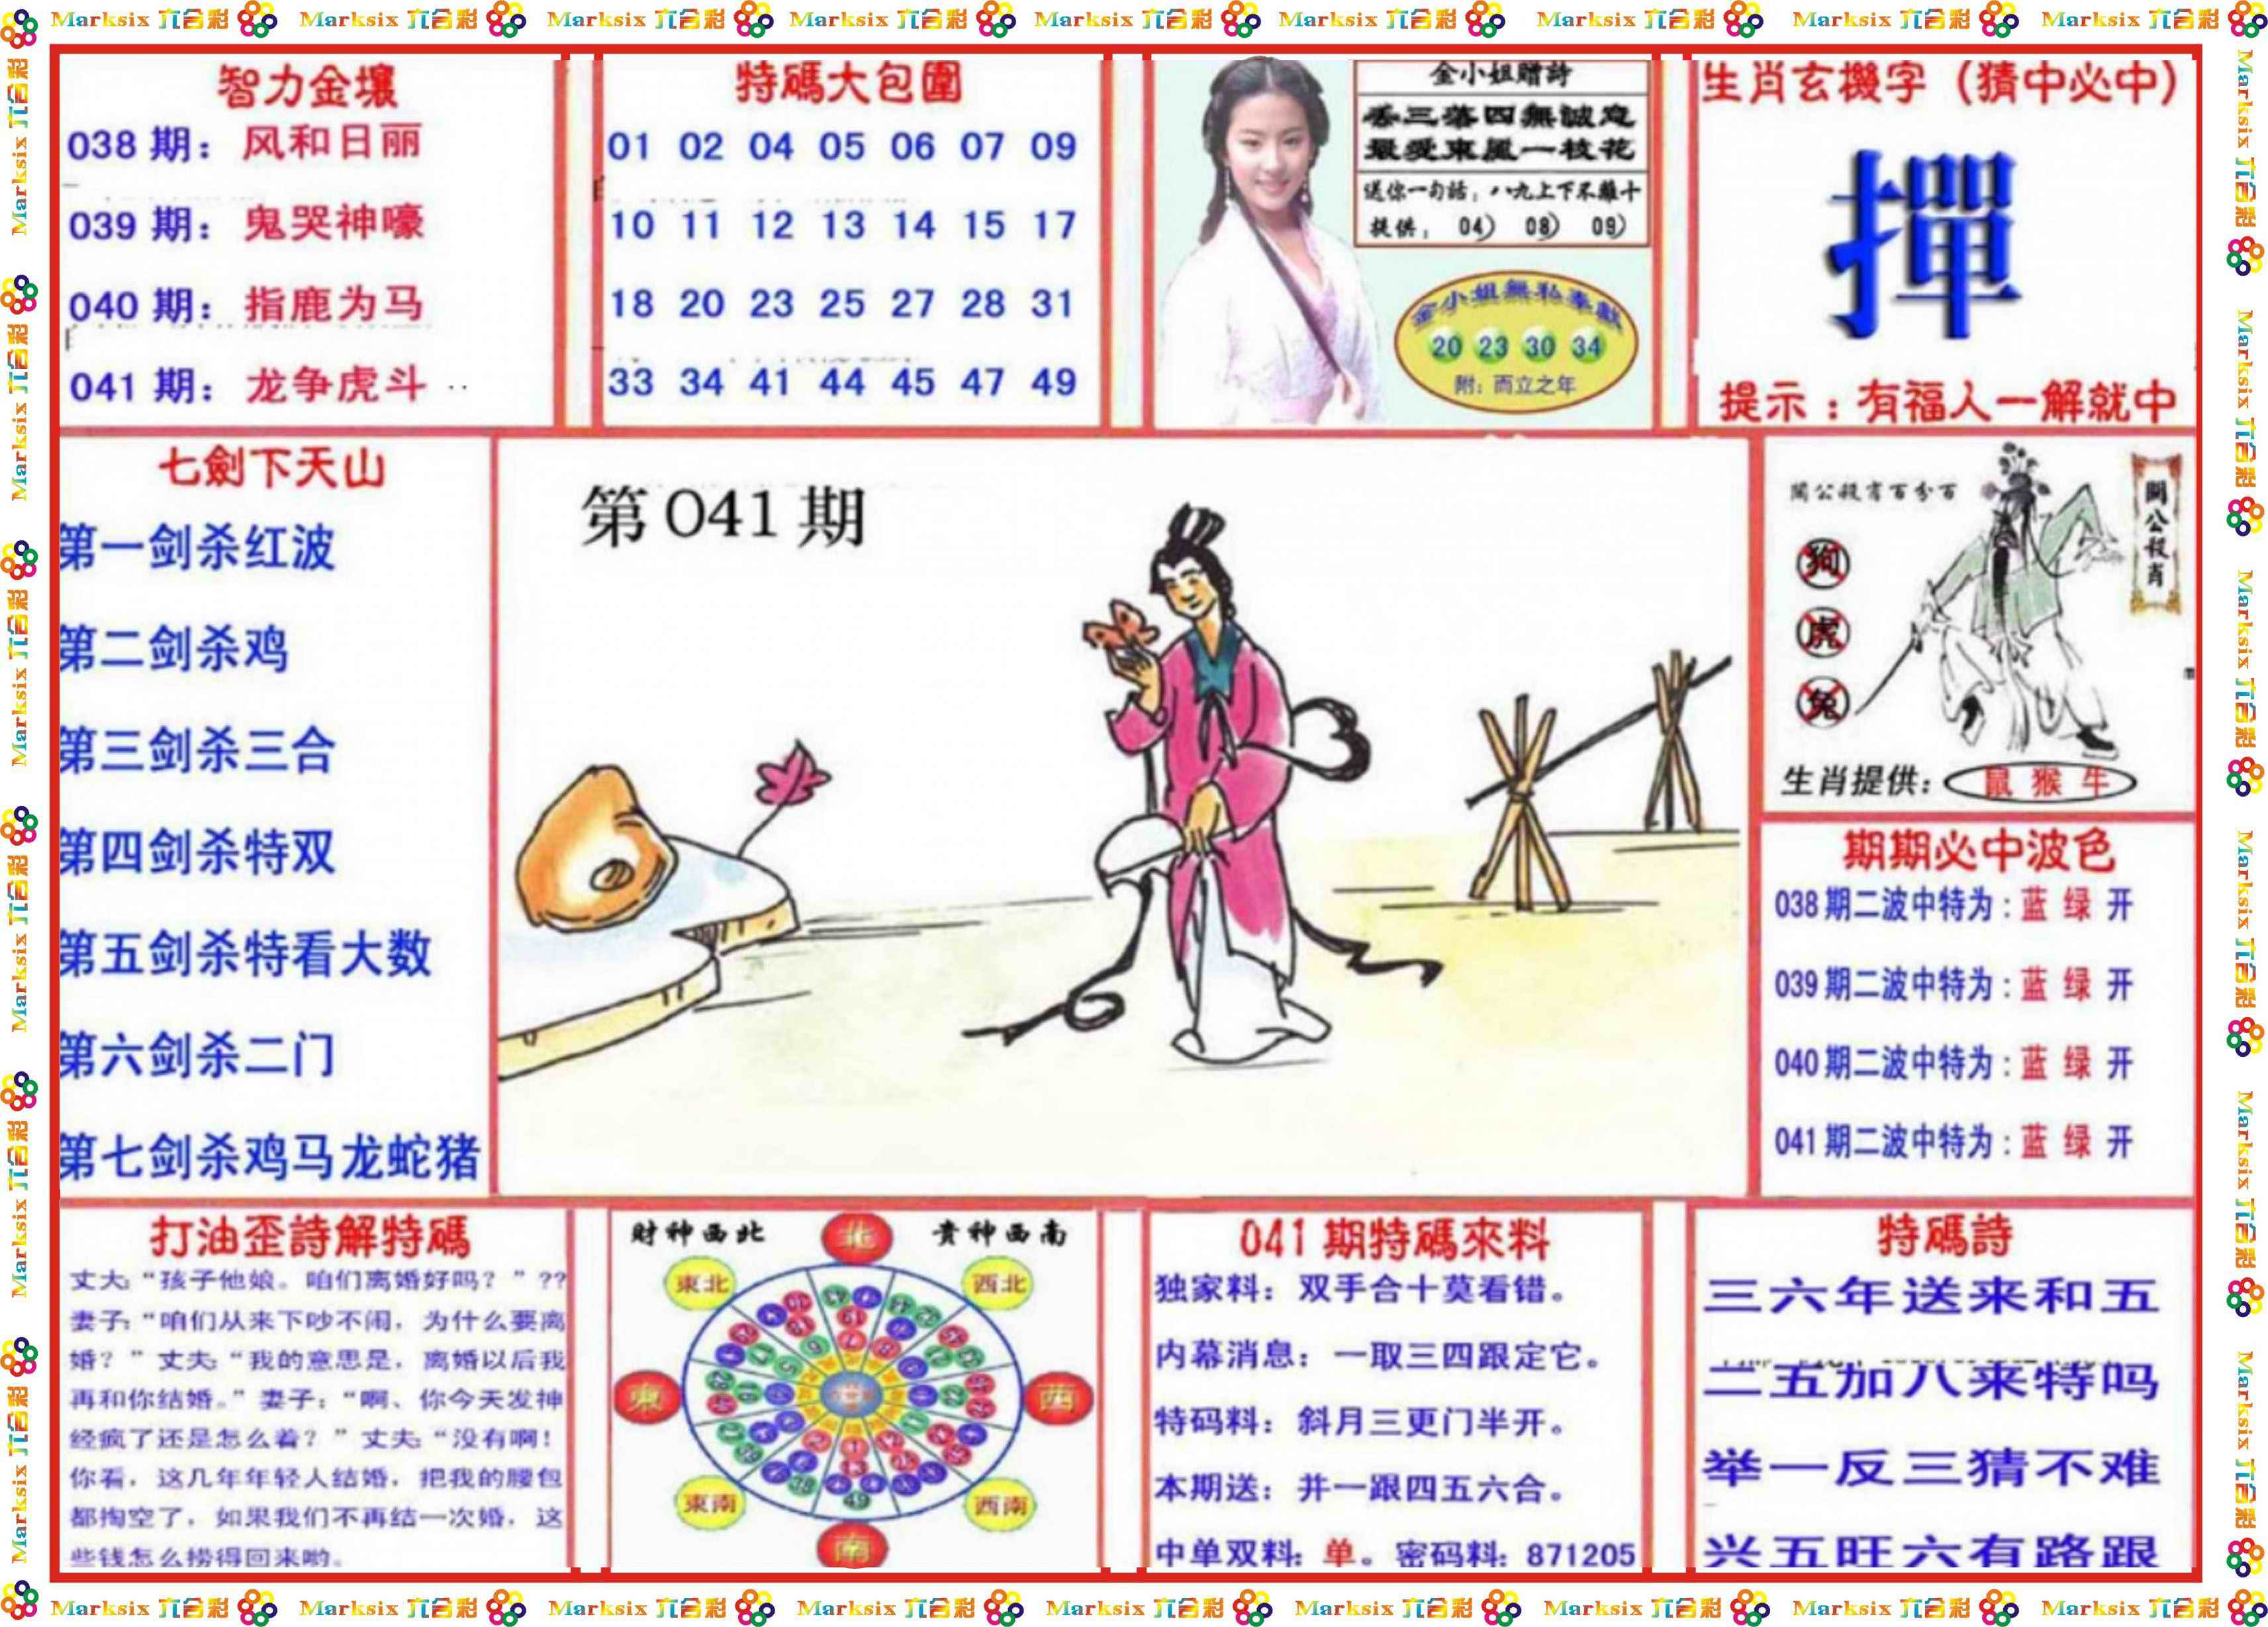 Marksix 六合彩 Marksix 六合彩 Marksix 六合彩 Marksix 六合彩 Marksix 六合彩 Marksix 六合彩 Marksix 六合彩 Marksix 六合彩 Marksix 六合彩
智力金壤
038 期：风和日丽
039 期：鬼哭神嚎
040 期：指鹿为马
041 期：龙争虎斗
特碼大包圍
01 02 04 05 06 07 09
10 11 12 13 14 15 17
18 20 23 25 27 28 31
33 34 41 44 45 47 49
金小姐贈詩
丢三落四無誠意
最愛東風一枝花
送你一句話：八九上下不離十
提供： 04） 08） 09）
金小姐無私奉獻
20 23 30 34
附：而立之年
生肖玄機字（猜中必中）
撣
提示：有福人一解就中
七劍下天山
第一剑杀红波
第二剑杀鸡
第三剑杀三合
第四剑杀特双
第五剑杀特看大数
第六剑杀二门
第七剑杀鸡马龙蛇猪
第 041 期
關公殺肖百分百
關公殺肖
狗
虎
兔
生肖提供：鼠 猴 牛
期期必中波色
038 期二波中特为：蓝 绿 开
039 期二波中特为：蓝 绿 开
040 期二波中特为：蓝 绿 开
041 期二波中特为：蓝 绿 开
打油歪詩解特碼
丈大：“孩子他娘。咱们离婚好吗？”??
妻子：“咱们从来下吵不闹，为什么要离
婚？”丈夫：“我的意思是，离婚以后我
再和你结婚。”妻子：“啊、你今天发神
经疯了还是怎么着？”丈夫：“没有啊！
你看，这几年年轻人结婚，把我的腰包
都掏空了，如果我们不再结一次婚，这
些钱怎么捞得回来哟。
財神西北
貴神西南
北
東北
西北
東
西
東南
西南
南
49
041 期特碼來料
独家料：双手合十莫看错。
内幕消息：一取三四跟定它。
特码料：斜月三更门半开。
本期送：并一跟四五六合。
中单双料：单。密码料：871205
特碼詩
三六年送来和五
二五加八来特吗
举一反三猜不难
兴五旺六有路跟
Marksix 六合彩 Marksix 六合彩 Marksix 六合彩 Marksix 六合彩 Marksix 六合彩 Marksix 六合彩 Marksix 六合彩 Marksix 六合彩 Marksix 六合彩